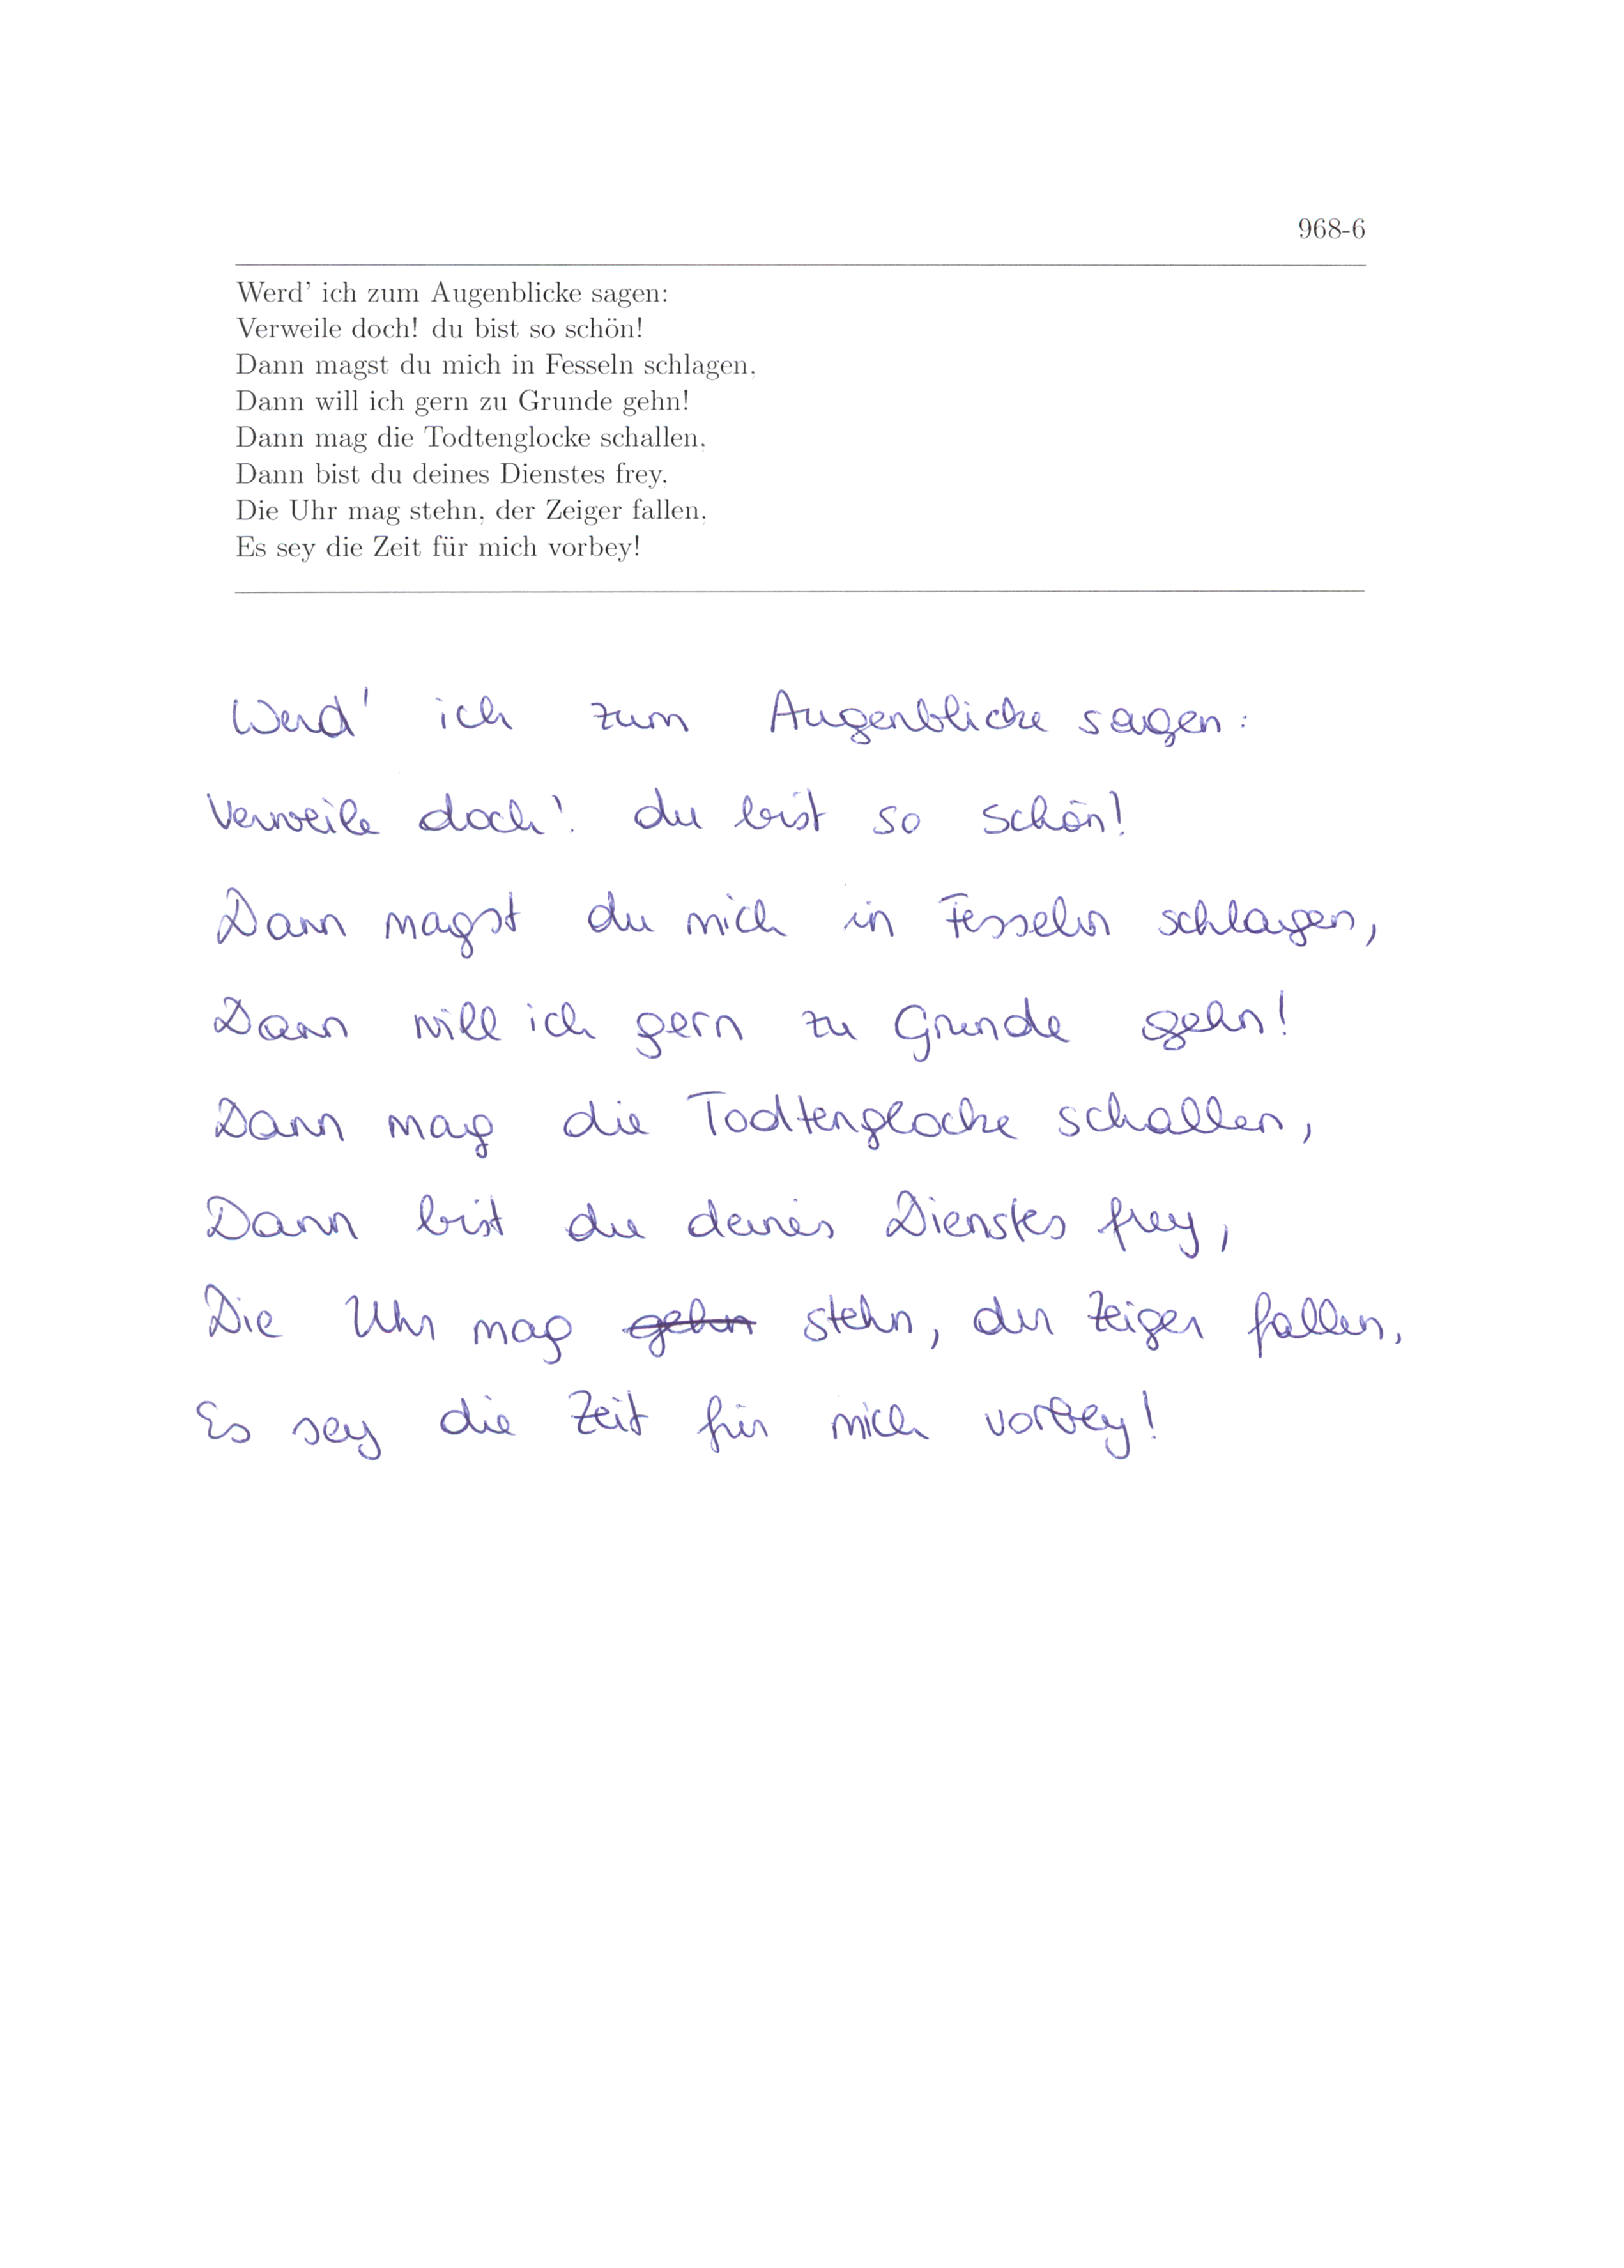 968-6
Werd' ich zum Augenblicke sagen:
Verweile doch! du bist so schön!
Dann magst du mich in Fesseln schlagen,
Dann will ich gern zu Grunde gehn!
Dann mag die Todtenglocke schallen,
Dann bist du deines Dienstes frey,
Die Uhr mag stehn, der Zeiger fallen,
Es sey die Zeit für mich vorbey!
Werd' ich zum Augenblicke sagen:
Verweile doch! du bist so schön!
Dann magst du mich in Fesseln schlagen,
Dann will ich gern zu Grunde gehn!
Dann mag die Todtenglocke schallen,
Dann bist du deines Dienstes frey,
Die Uhr mag gehn stehn, der Zeiger fallen,
Es sey die Zeit für mich vorbey!